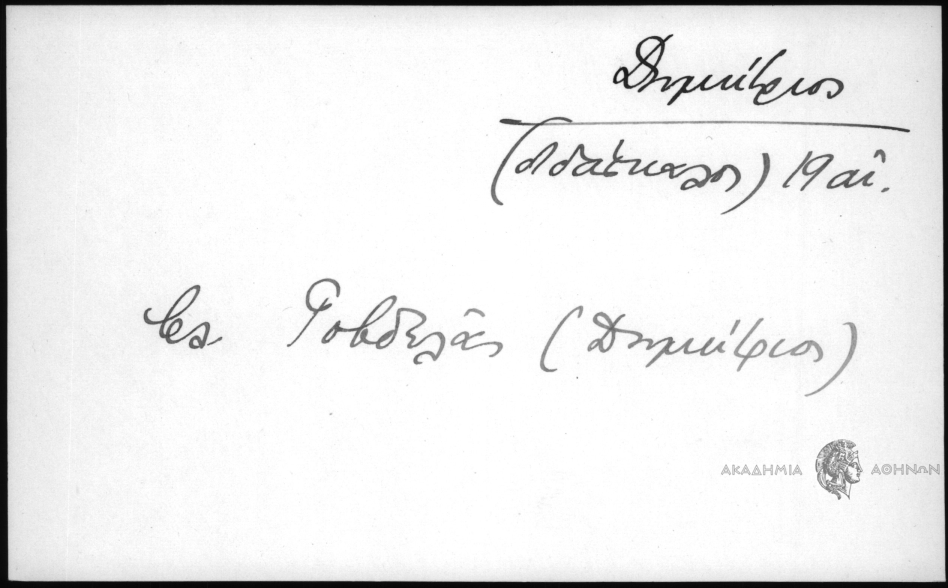 Δημήτριος
(διδάσκαλος) 19 αἰ.
βλ. Γοβδελᾶς (Δημήτριος)
ΑΚΑΔΗΜΙΑ ΑΘΗΝΩΝ